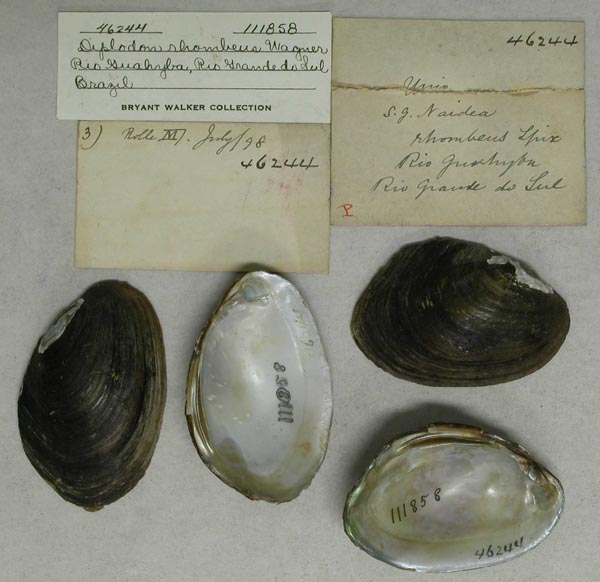 46244 111858
Diplodon rhombeus Wagner
Rio Guahyba, Rio Grande do Sul
Brazil
BRYANT WALKER COLLECTION
3) Rolle IV. July/98
46244
46244
Unio
s.g. Naidea
rhombeus Spix
Rio Guahyba
Rio Grande do Sul
P
111858
111858
46244